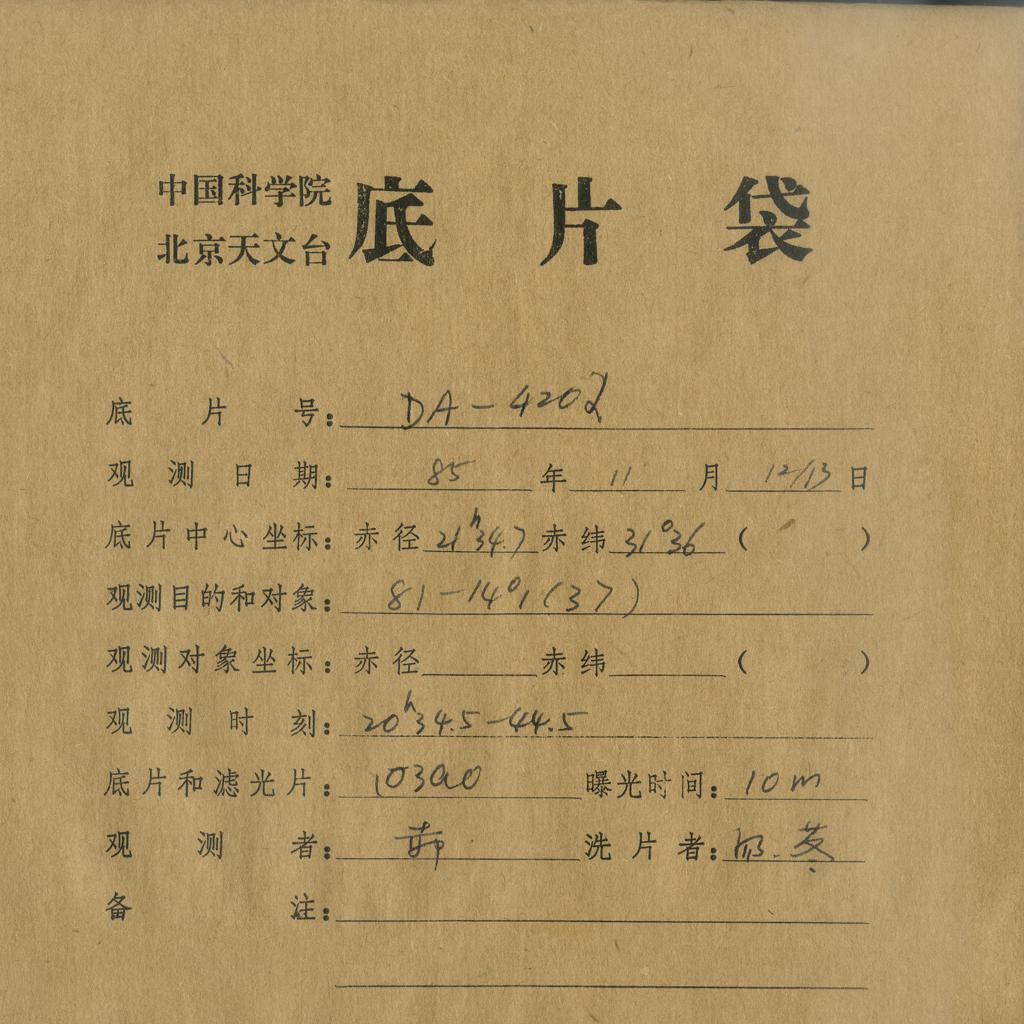 中国科学院
北京天文台
底片袋
底片号: DA-4202
观测日期: 85年11月12/13日
底片中心坐标: 赤径21ʰ34.7赤纬31°36( )
观测目的和对象: 81-14°1(37)
观测对象坐标: 赤径 赤纬 ( )
观测时刻: 20ʰ34.5-44.5
底片和滤光片: 103aO 曝光时间: 10m
观测者: 洗片者:
备注: